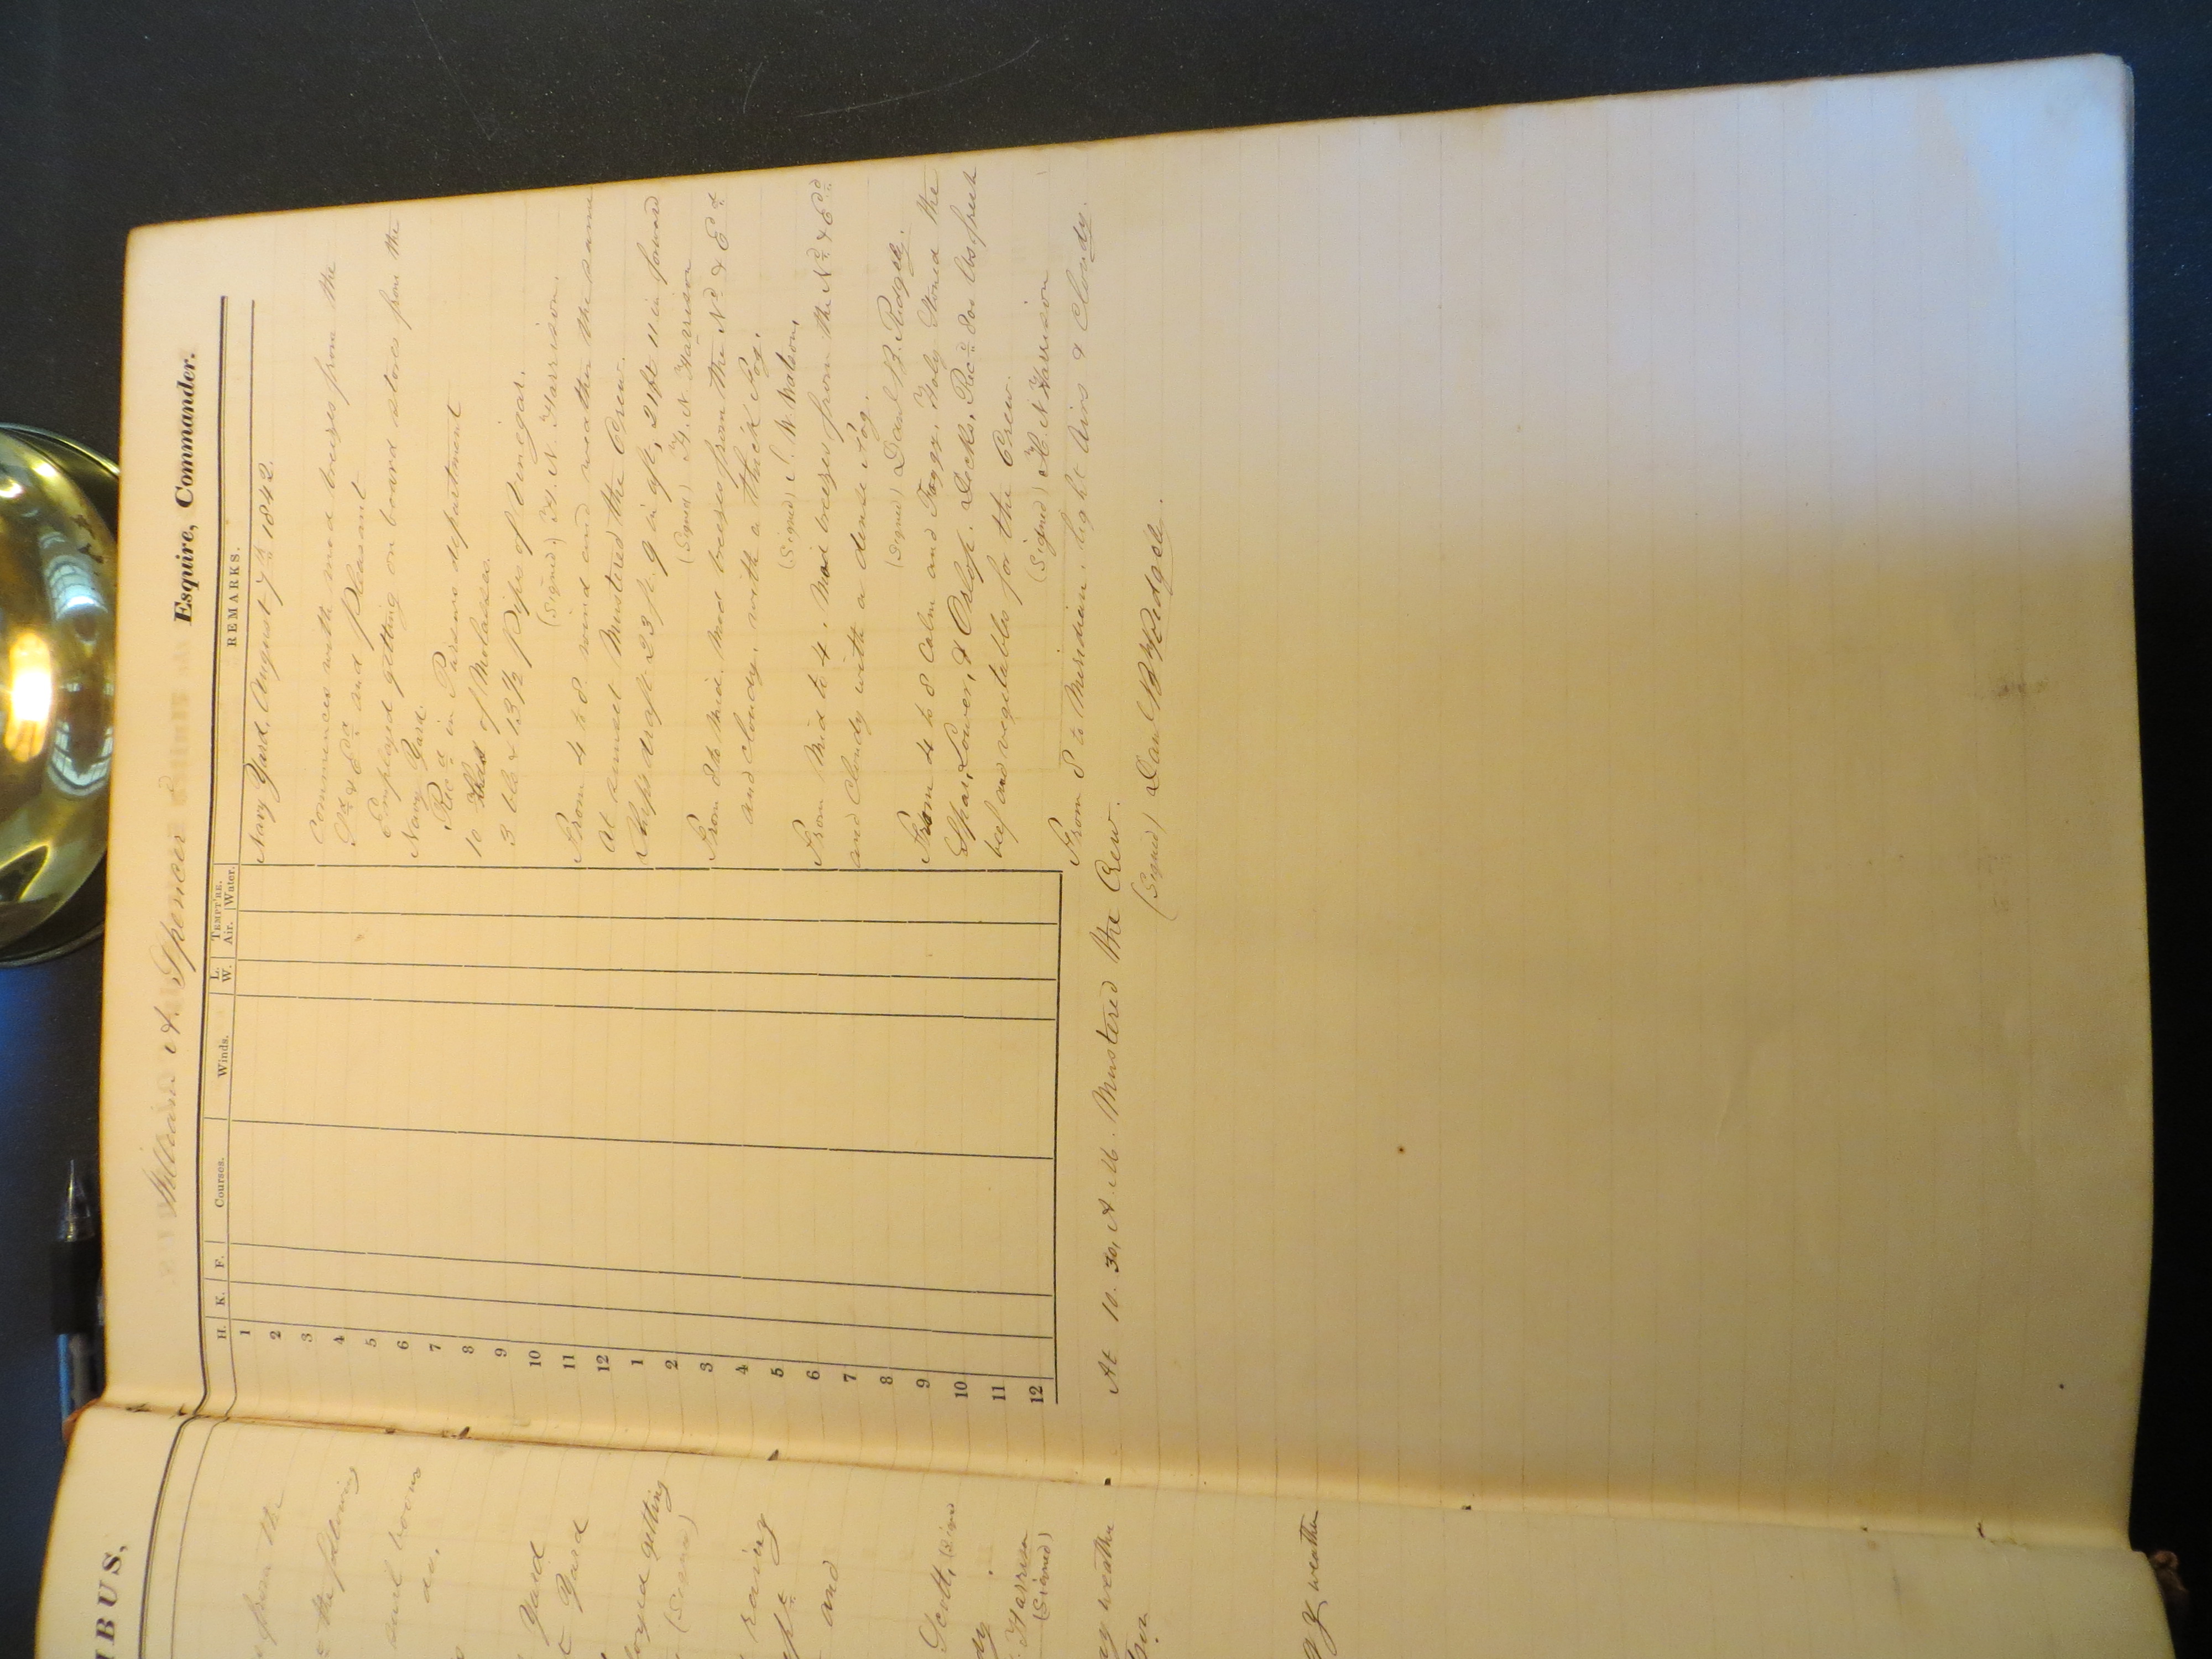 William A. Spencer Esquire, Commander.
H. K. F. Courses. Winds. L. W. TEMPT'RE. Air. Water. REMARKS.
1
2
3
4
5
6
7
8
9
10
11
12
1
2
3
4
5
6
7
8
9
10
11
12
Navy Yard, August 7th 1842.
Commences with mod breezes from the
Sd & Ed and pleasant
Employed getting on board stores from the
Navy Yard.
Recd in Pursers department
10 of Molasses.
3 bbls & 13 1/2 Pipes of Vinegar.
(Signed) H. N. Harrison.
From 4 to 8 wind and weather the same
At sunset Mustered the Crew.
Ships draft 23 ft. 9 in aft, 21 ft 11 in forward
(Signed) H. N Harrison
From 8 to Mid. Mod breezes from the Nd & Ed
and cloudy, with a thick Fog.
(Signed) J. W. Watson,
From Mid to 4. Mod breezes from the Nd & Ed
and Cloudy with a dense Fog.
(Signed) Danl B. Ridgely.
From 4 to 8 Calm and Foggy, Holy Stoned the
Spar, Lower, & Orlop. Decks, Recd 801 lbs fresh
beef and vegetables for the Crew.
(Signed) H. N Harrison
From 8 to Meridian. light Airs & Cloudy.
At 10.30, A.M. Mustered the Crew.
(Signed) Danl B Ridgely.
MBUS,
from the
the following
and booms
do.
Yard
Yard
getting
(Signed)
raining
and
Scott, (Signed
Harrison
(Signed)
weather
weather